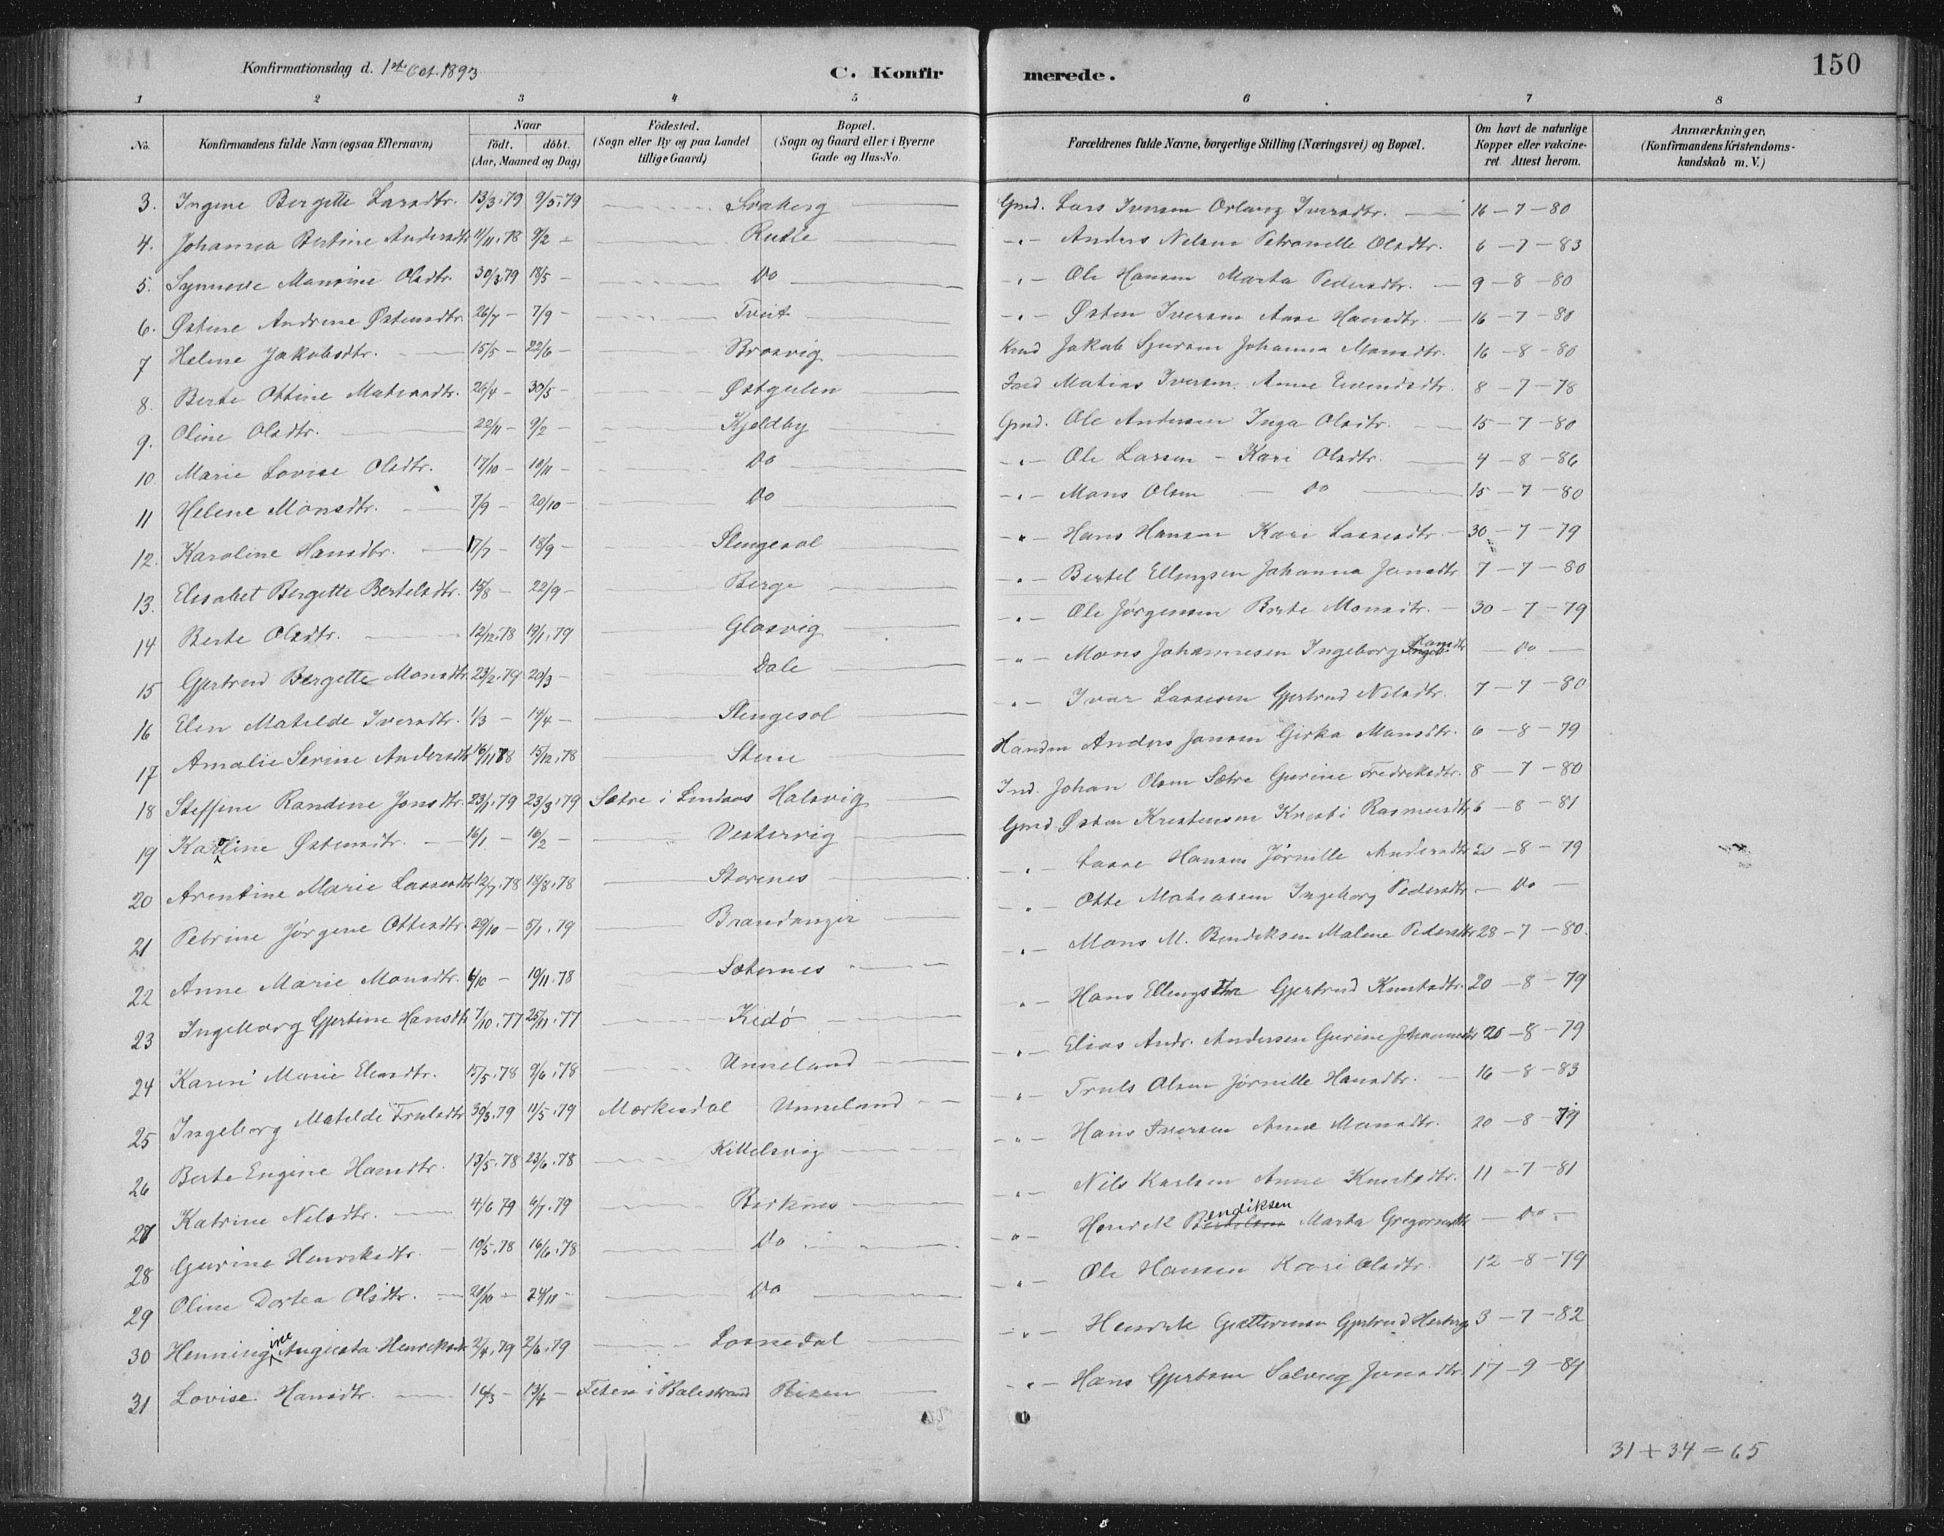 Konfirmationsdag d. 1ste Oct. 1893
C. Konfirmerede.
150
1 2 3 4 5 6 7 8
No. Konfirmandens fulde Navn (ogsaa Efternavn) Naar födt. döbt. (Aar, Maaned og Dag) Födested. (Sogn eller By og paa Landet tillige Gaard) Bopæl. (Sogn og Gaard eller i Byerne Gade og Hus-No. Forældrenes fulde Navne, borgerlige Stilling (Næringsvei) og Bopæl. Om havt de naturlige Kopper eller vakcineret. Attest herom. Anmærkninger. (Konfirmandens Kristendomskundskab m. V.)
3. Ingine Bergette Larsdtr. 13/3.79 9/5.79 Svaberg Grnd. Lars Iversen Iversdtr. 16-7-80
4. Johanna Bertine Andersdtr 11/11.78 9/2 - Rutle -"- Anders Nilsen Petronelle Olsdtr. 6-7-83
5. Synneve Monsine Olsdtr. 30/3.79 18/5 - Do -"- Ole Hansen Marta Pedersdtr. 9-8-80
6. Østine Andrine Østensdtr. 26/7 - 7/9 - Tveit -"- Østen Iversen Aase Hansdtr. 16-7-80
7 Helene Jakobsdtr. 15/5 - 22/6 - Brosvig Jakob Sjursen Johanna Monsdtr. 16-8-80
8. Berte Ottine Matiasdtr. 26/4 - 30/5 - Østgulen Matias Iversen Anne Eivendsdtr. 8-7-78
9. Oline Olsdtr. 22/11 - 9/2 - Kjeldby Grnd. Ole Andersen Inga Olsdtr. 15-7-80
10 Marie Lovise Olsdtr. 17/10 - 10/11 - Do -"- Ole Larsen - Kari Olsdtr. 4-8-86
11 Helene Monsdtr. 7/9 - 20/10 - Do -"- Mons Olsen - Do 15-7-80
12. Karoline Hansdtr. 17/7 - 18/9 - Slengesol -"- Hans Hansen Kari Lassesdtr 30-7-79
13. Elisabet Bergette Bertelsdtr. 15/8 - 22/9 - Berge -"- Bertel Ellingsen Johanna Jonsdtr 7-7-80
14 Berte Olsdtr. 12/12.78 19/1.79 Glosvig -"- Ole Jørgensen Brite Monsdtr. 30-7-79
15 Gjertrud Bergette Monsdtr. 23/2.79 20/3 - Dale -"- Mons Johannesen Ingeborg Hansdtr - Do -
16 Elen Matilde Iversdtr. 1/3 - 14/4 - Slengesol -"- Ivar Lassesen Gjertrud Nilsdtr. 7-7-80
17 Amalie Serine Andersdtr 16/11.78 15/12.78 Stene Handm Anders Jansen Girka Monsdtr. 6-8-79
18 Steffine Randine Jonsdtr. 23/1.79 23/3.79 Sætre i Lindaas Halsvig Ind. Johan Olsen Sætre Gurine Fredriksdtr. 8-7-80
19 Karoline Østensdtr. 16/1 - 16/2 - Vestervig Grnd. Østen Kristensen Kristi Rasmusdtr 6-8-81
20 Arentine Marie Lassesdtr 12/7.78 18/8.78 Storenes -"- Lasse Hansen Jørnille Andersdtr 20-8-79
21 Petrine Jørgine Ottesdtr. 29/10 - 5/1.79 Brandanger -"- Otte Matiassen Ingeborg Pedersdtr - Do -
22 Anne Marie Monsdtr. 6/10 - 19/11.78 Sæternes -"- Mons M. Bendiksen Malene Pedersdtr 28-7-80.
23 Ingeborg Gjertine Hansdtr 7/10.77 25/11.77 Kedø -"- Hans Ellings Gjertrud Knutsdtr. 20-8-79
24 Karen Marie Eliasdtr. 15/5.78 9/6.78 Unneland -"- Elias Andr. Andersen Gurine Johannesdtr 20-8-79
25 Ingeborg Matilde Trulsdtr 30/3.79 11/5.79 Mørkesdal Unneland -"- Truls Olsen Jørnille Hansdtr. 16-8-83
26 Berte Engine Hansdtr. 13/5.78 23/6.78 Kittelsvig -"- Hans Iversen Anne Monsdtr. 20-8-79
27 Katrine Nilsdtr. 4/6 79 6/7.79 Berknes -"- Nils Karlsen Anne Knutsdtr. 11-7-81
28 Gurine Henriksdtr. 19/5.78 16/6.78 Do -"- Henrik Bendiksen Marta Gregoriusdtr - Do -
29 Oline Dortea Olsdtr. 20/10 - 24/11 - Do -"- Ole Hansen Kaari Olsdtr. 12-8-79
30 Henningine Augusta Henriksdtr 2/4.79 2/6.79 Losnedal -"- Henrik Guttormsen Gjertrud 3-7-82
31 Lovise Hansdtr. 16/3 - 13/4 - Feten i Balestrand Risen -"- Hans Gjertsen Solveig Jensdtr. 17-9-84
31 + 34 = 65